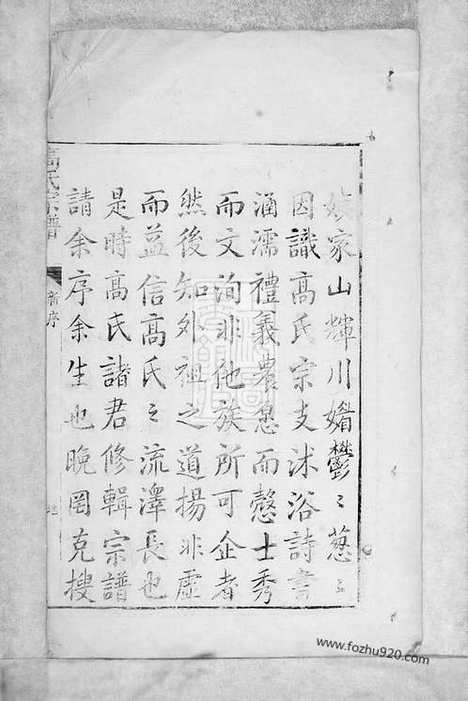 嫔家山輝川媚鬱〻葱〻
因識髙氏宗支沐浴詩書
涵濡禮義農慤而慤士秀
而文洵非他族所可企者
然後知外祖之道揚非虛
而益信髙氏之流澤長也
是時髙氏諸君修輯宗譜
請余序余生也晚罔克搜
髙氏宗譜
序
www.fozhu920.com